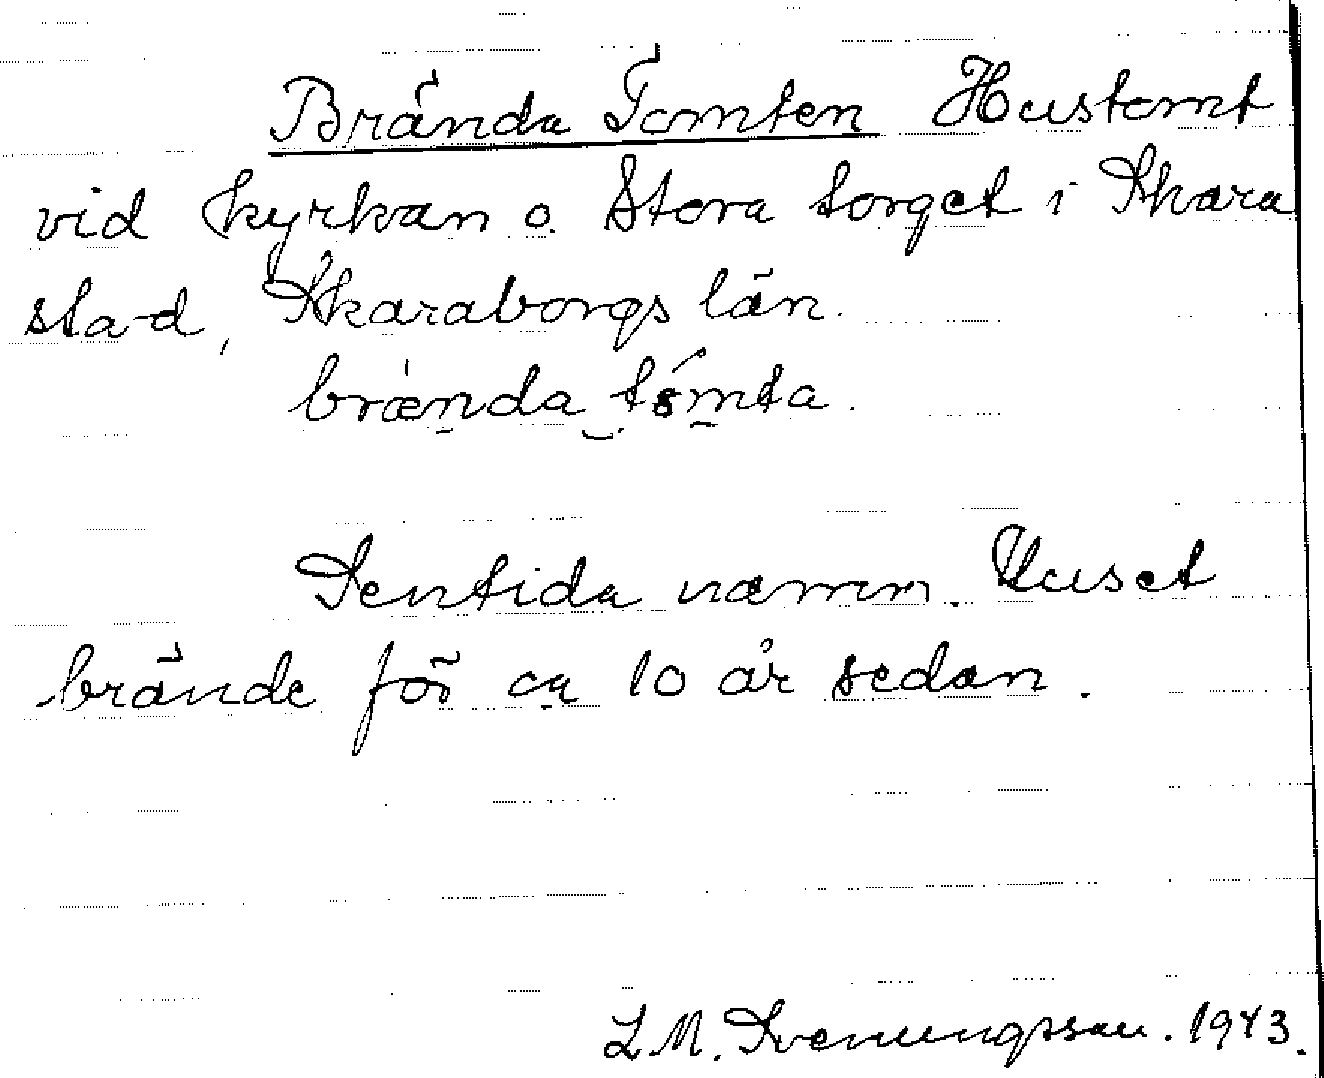 Brända Tomten Hustomt
vid kyrkan o. Stora torget i Skara
stad, Skaraborgs län.
brænda tómta.
Sentida namn. Huset
brände för ca 10 år sedan.
L.M. Svenungsson. 1943.